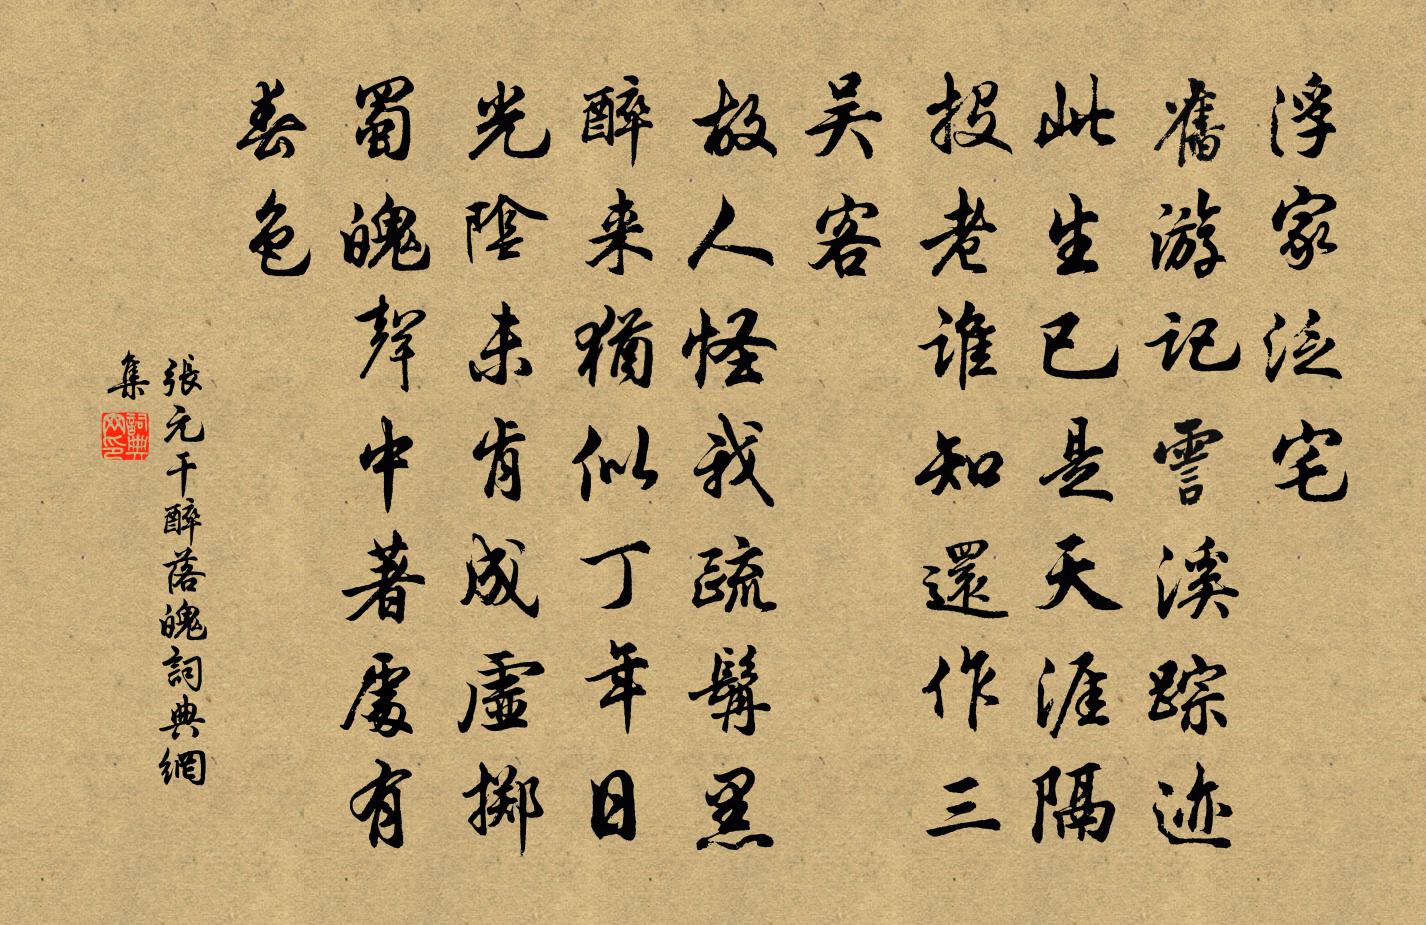 浮家泛宅
舊游記霅溪踪迹
此生已是天涯隔
投老誰知還作三
吴客
故人怪我疏髯黑
醉来猶似丁年日
光陰未肯成虛擲
蜀魄聲中著處有
春色
張元干醉落魄詞典網
集
詞典
网印